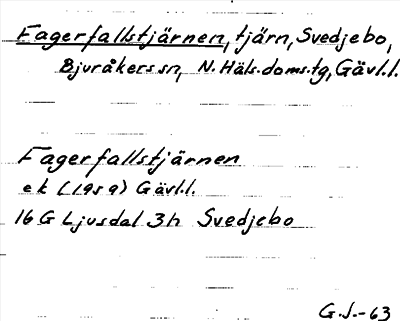 Fagerfallstjärnen, tjärn, Svedjebo,
Bjuråkers sn, N. Häls. doms.tg, Gävl.l.
Fagerfallstjärnen
ek (1959) Gävl.l.
16 G Ljusdal 3h Svedjebo
G.J.-63